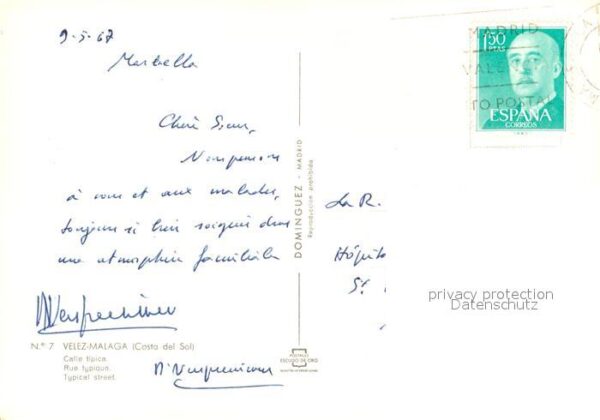 9-5-67
Marbella
Chère Sœur,
Nous pensons
à vous et aux malades,
toujours si bien soignés dans
une atmosphère familiale
N.º 7 VELEZ-MALAGA (Costa del Sol)
Calle típica.
Rue typique.
Typical street.
DOMINGUEZ - MADRID
Reproducción prohibida
POSTALES
ESCUDO DE ORO
1,50
PTAS
ESPAÑA
CORREOS
MADRID
TO POSTAL
La R.
Hôpital
St.
privacy protection
Datenschutz